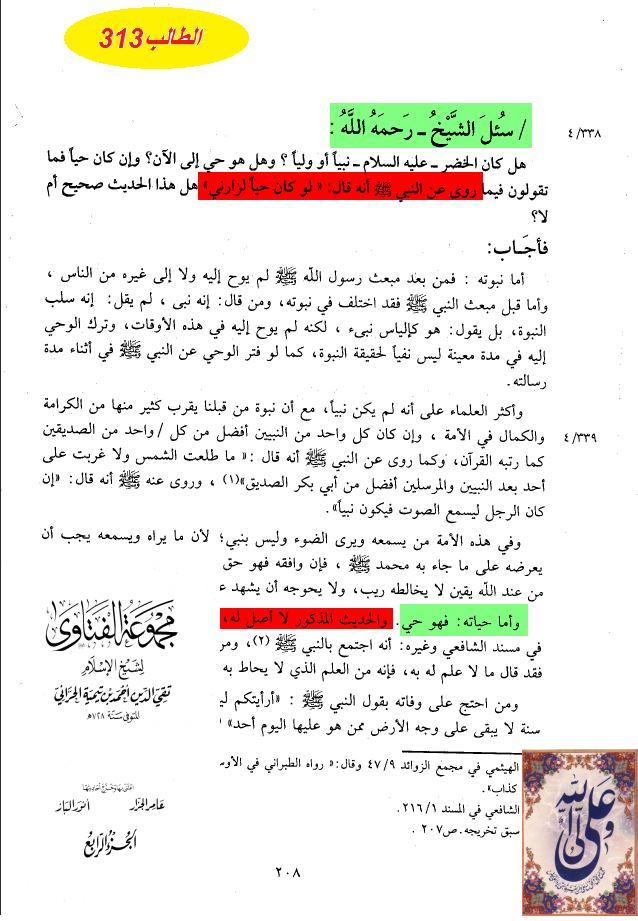 الطالب 313
٤/٣٣٨
/ سُئلَ الشَّيْخُ ـ رَحمَهُ اللَّهُ :
هل كان الخضر ـ عليه السلام ـ نبياً أو ولياً ؟ وهل هو حي إلى الآن؟ وإن كان حياً فما
تقولون فيما روى عن النبي ﷺ أنه قال: « لو كان حياً لزارني» هل هذا الحديث صحيح أم
لا؟
فأجَـاب:
أما نبوته : فمن بعد مبعث رسول اللّه ﷺ لم يوح إليه ولا إلى غيره من الناس ،
وأما قبل مبعث النبي ﷺ فقد اختلف في نبوته، ومن قال: إنه نبى ، لم يقل: إنه سلب
النبوة، بل يقول: هو كإلياس نبىء ، لكنه لم يوح إليه في هذه الأوقات، وترك الوحي
إليه في مدة معينة ليس نفياً لحقيقة النبوة، كما لو فتر الوحي عن النبي ﷺ في أثناء مدة
رسالته.
وأكثر العلماء على أنه لم يكن نبياً، مع أن نبوة من قبلنا يقرب كثير منها من الكرامة
٤/٣٣٩
والكمال في الأمة ، وإن كان كل واحد من النبيين أفضل من كل / واحد من الصديقين
كما رتبه القرآن، وكما روى عن النبي ﷺ أنه قال :« ما طلعت الشمس ولا غربت على
أحد بعد النبيين والمرسلين أفضل من أبي بكر الصديق»(١) ، وروى عنه ﷺ أنه قال: «إن
كان الرجل ليسمع الصوت فيكون نبياً».
وفي هذه الأمة من يسمعه ويرى الضوء وليس بنبي؛ لأن ما يراه ويسمعه يجب أن
يعرضه على ما جاء به محمد ﷺ ، فإن وافقه فهو حق
من عند اللّه يقين لا يخالطه ريب، ولا يحوجه أن يشهد ع
وأما حياته: فهو حي. والحديث المذكور لا أصل له،
في مسند الشافعي وغيره: أنه اجتمع بالنبي ﷺ (٢)، ومن
فقد قال ما لا علم له به، فإنه من العلم الذي لا يحاط به
ومن احتج على وفاته بقول النبي ﷺ : «أرأيتكم لي
سنة لا يبقى على وجه الأرض ممن هو عليها اليوم أحد»
مجموعة الفتاوى
لشيخ الإسلام
تقي الدين أحمد بن تيمية الحراني
المتوفى سنة ٧٢٨هـ
اعتنى بها وخرج أحاديثها
عامر الجزار
أنور الباز
الجزء الرابع
الهيثمي في مجمع الزوائد ٤٧/٩ وقال:« رواه الطبراني في الأوس
كذاب».
الشافعي في المسند ٢١٦/١ .
سبق تخريجه .ص٢٠٧ .
٢٠٨